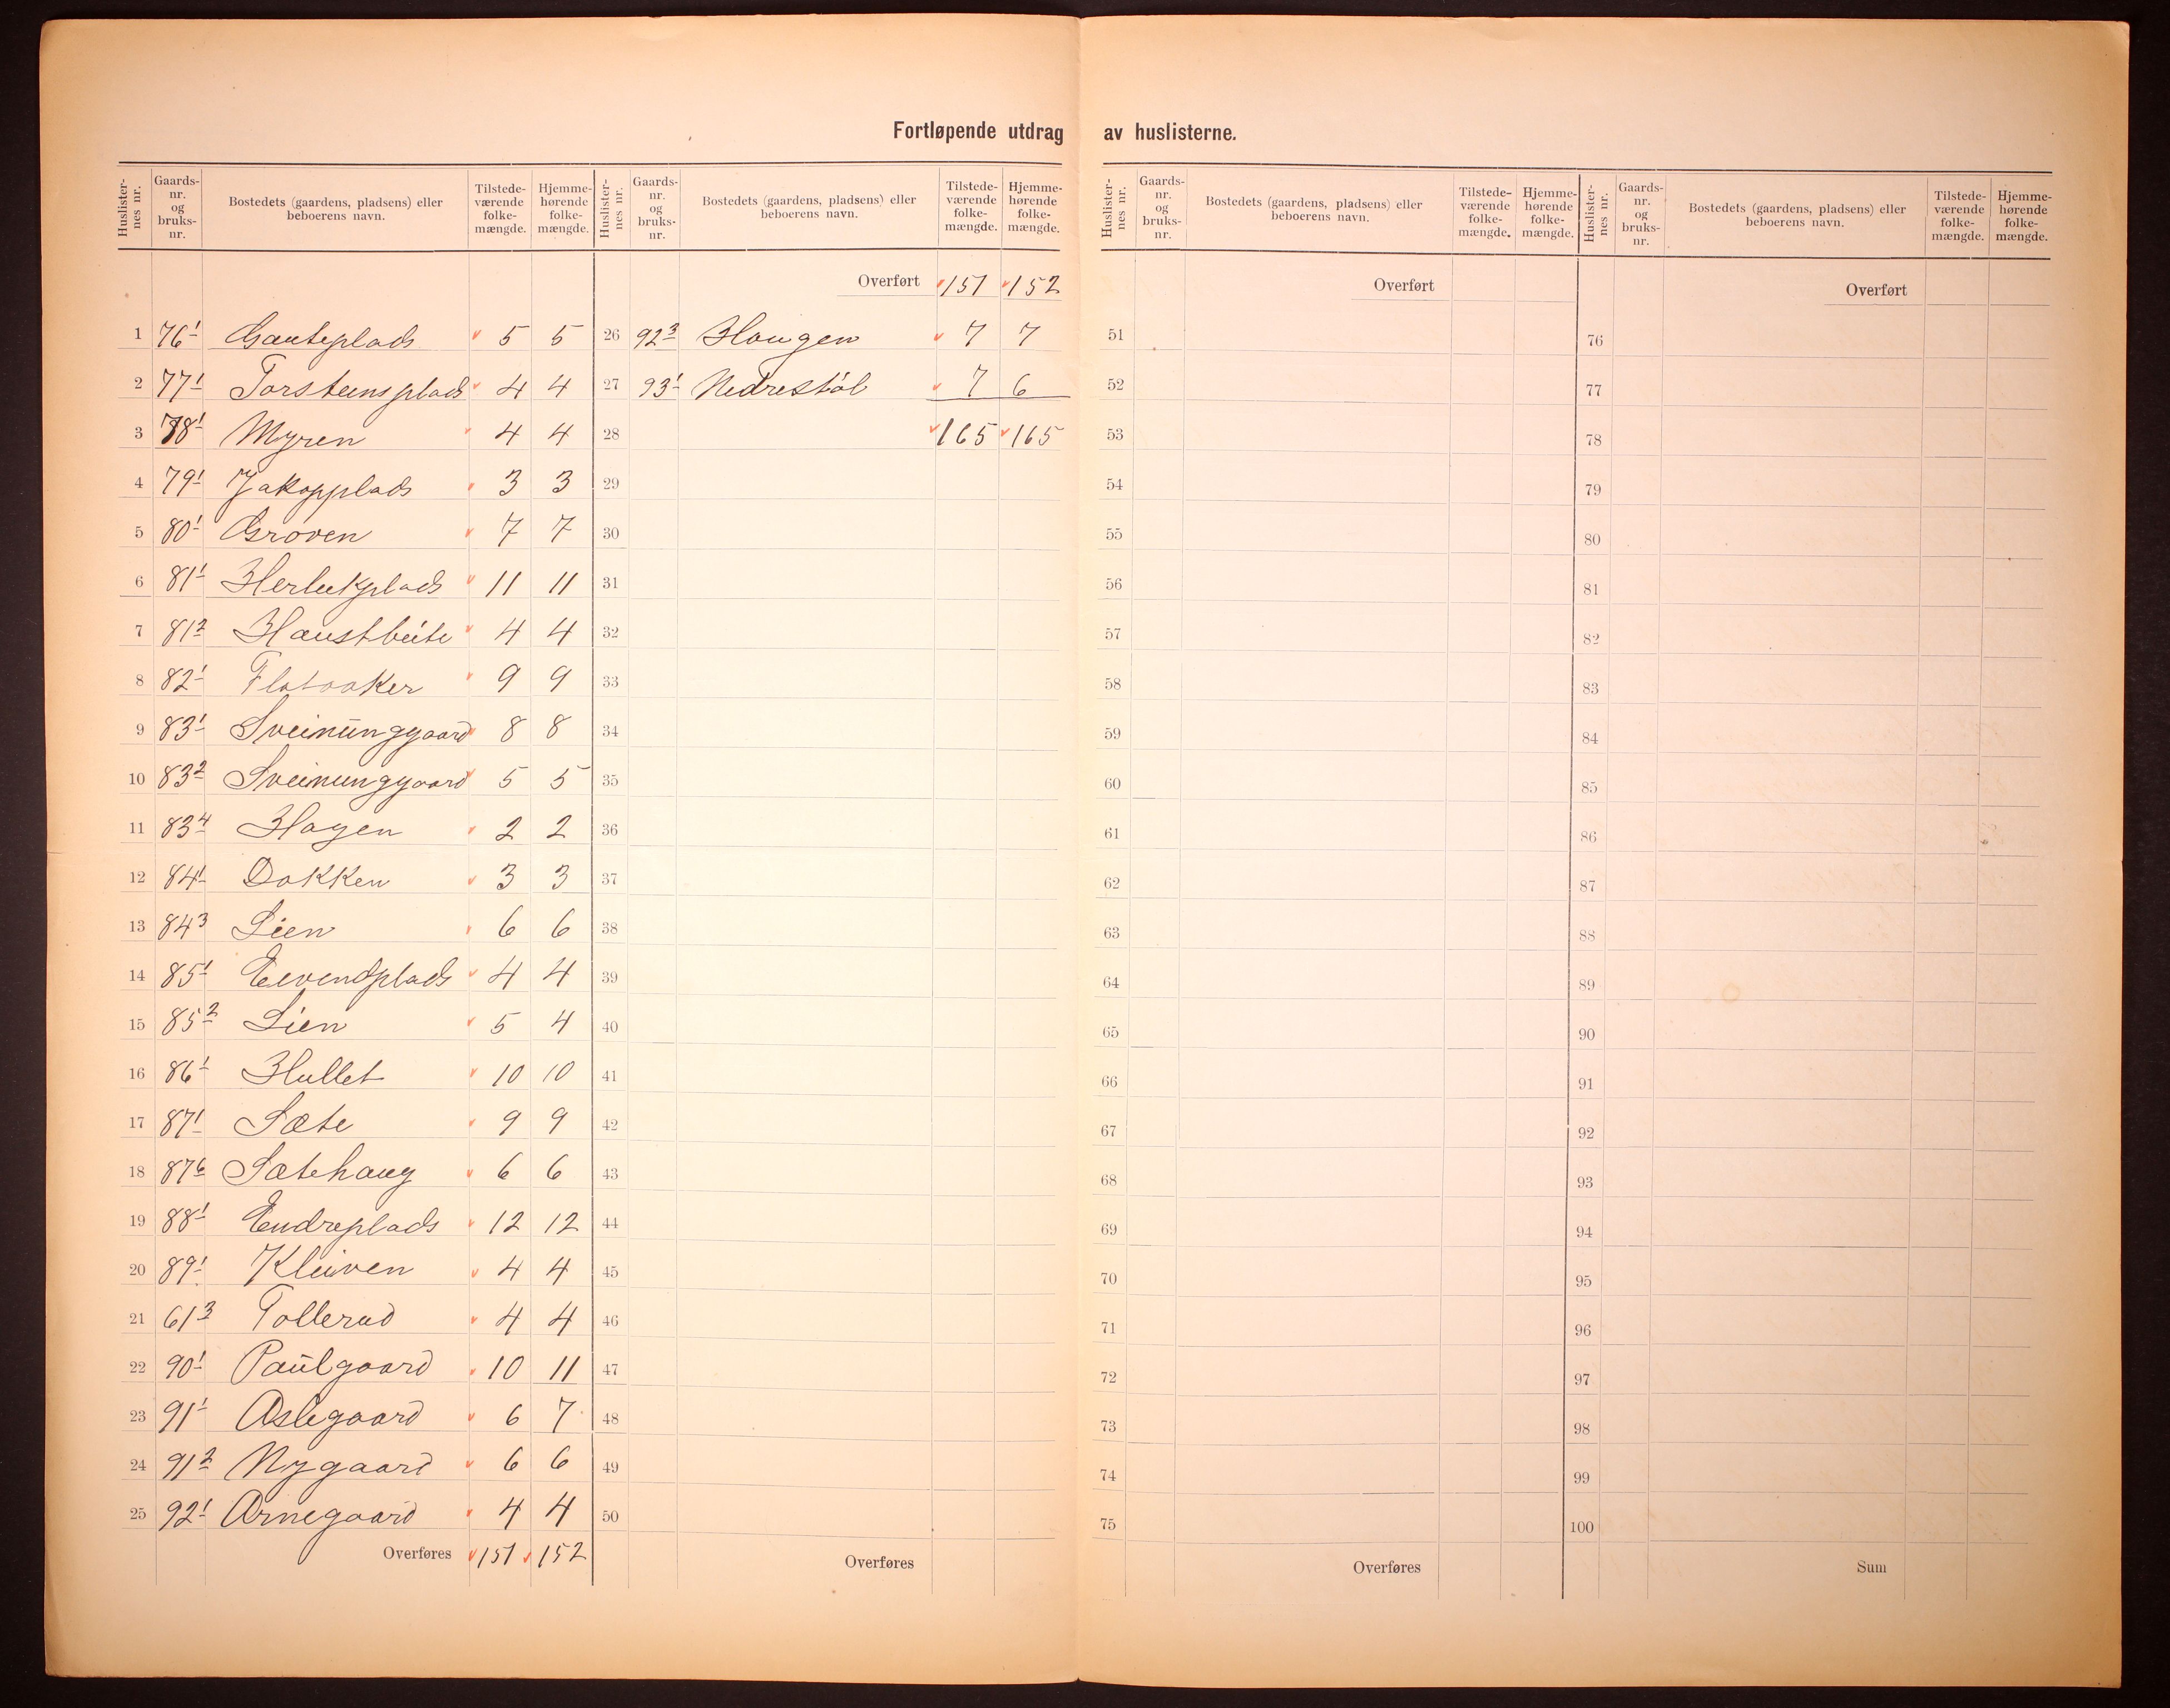 Fortløpende utdrag av huslisterne.
Huslisternes nr. Gaards-nr. og bruks-nr. Bostedets (gaardens, pladsens) eller beboerens navn. Tilstedeværende folkemængde. Hjemmehørende folkemængde.
1 76¹ Gauteplads 5 5
2 77¹ Torsteinsplads 4 4
3 78¹ Myren 4 4
4 79¹ Jakopplads 3 3
5 80¹ Grøven 7 7
6 81¹ Herleikplads 11 11
7 81² Haustbeite 4 4
8 82¹ Flataaker 9 9
9 83¹ Sveinunggaard 8 8
10 83² Sveinunggaard 5 5
11 83⁴ Hagen 2 2
12 84¹ Dokken 3 3
13 84³ Lien 6 6
14 85¹ Eivendplads 4 4
15 85² Lien 5 4
16 86¹ Hullet 10 10
17 87¹ Sæte 9 9
18 87⁶ Sætehaug 6 6
19 88¹ Endreplads 12 12
20 89¹ Kleiven 4 4
21 61³ Tollerud 4 4
22 90¹ Paulgaard 10 11
23 91¹ Aslegaard 6 7
24 91² Nygaard 6 6
25 92¹ Arnegaard 4 4
Overføres 151 152
Huslisternes nr. Gaards-nr. og bruks-nr. Bostedets (gaardens, pladsens) eller beboerens navn. Tilstedeværende folkemængde. Hjemmehørende folkemængde.
Overført 151 152
26 92³ Haugen 7 7
27 93¹ Nedrestøl 7 6
28 165 165
29
30
31
32
33
34
35
36
37
38
39
40
41
42
43
44
45
46
47
48
49
50
Overføres
Huslisternes nr. Gaards-nr. og bruks-nr. Bostedets (gaardens, pladsens) eller beboerens navn. Tilstedeværende folkemængde. Hjemmehørende folkemængde.
Overført
51
52
53
54
55
56
57
58
59
60
61
62
63
64
65
66
67
68
69
70
71
72
73
74
75
Overføres
Huslisternes nr. Gaards-nr. og bruks-nr. Bostedets (gaardens, pladsens) eller beboerens navn. Tilstedeværende folkemængde. Hjemmehørende folkemængde.
Overført
76
77
78
79
80
81
82
83
84
85
86
87
88
89
90
91
92
93
94
95
96
97
98
99
100
Sum